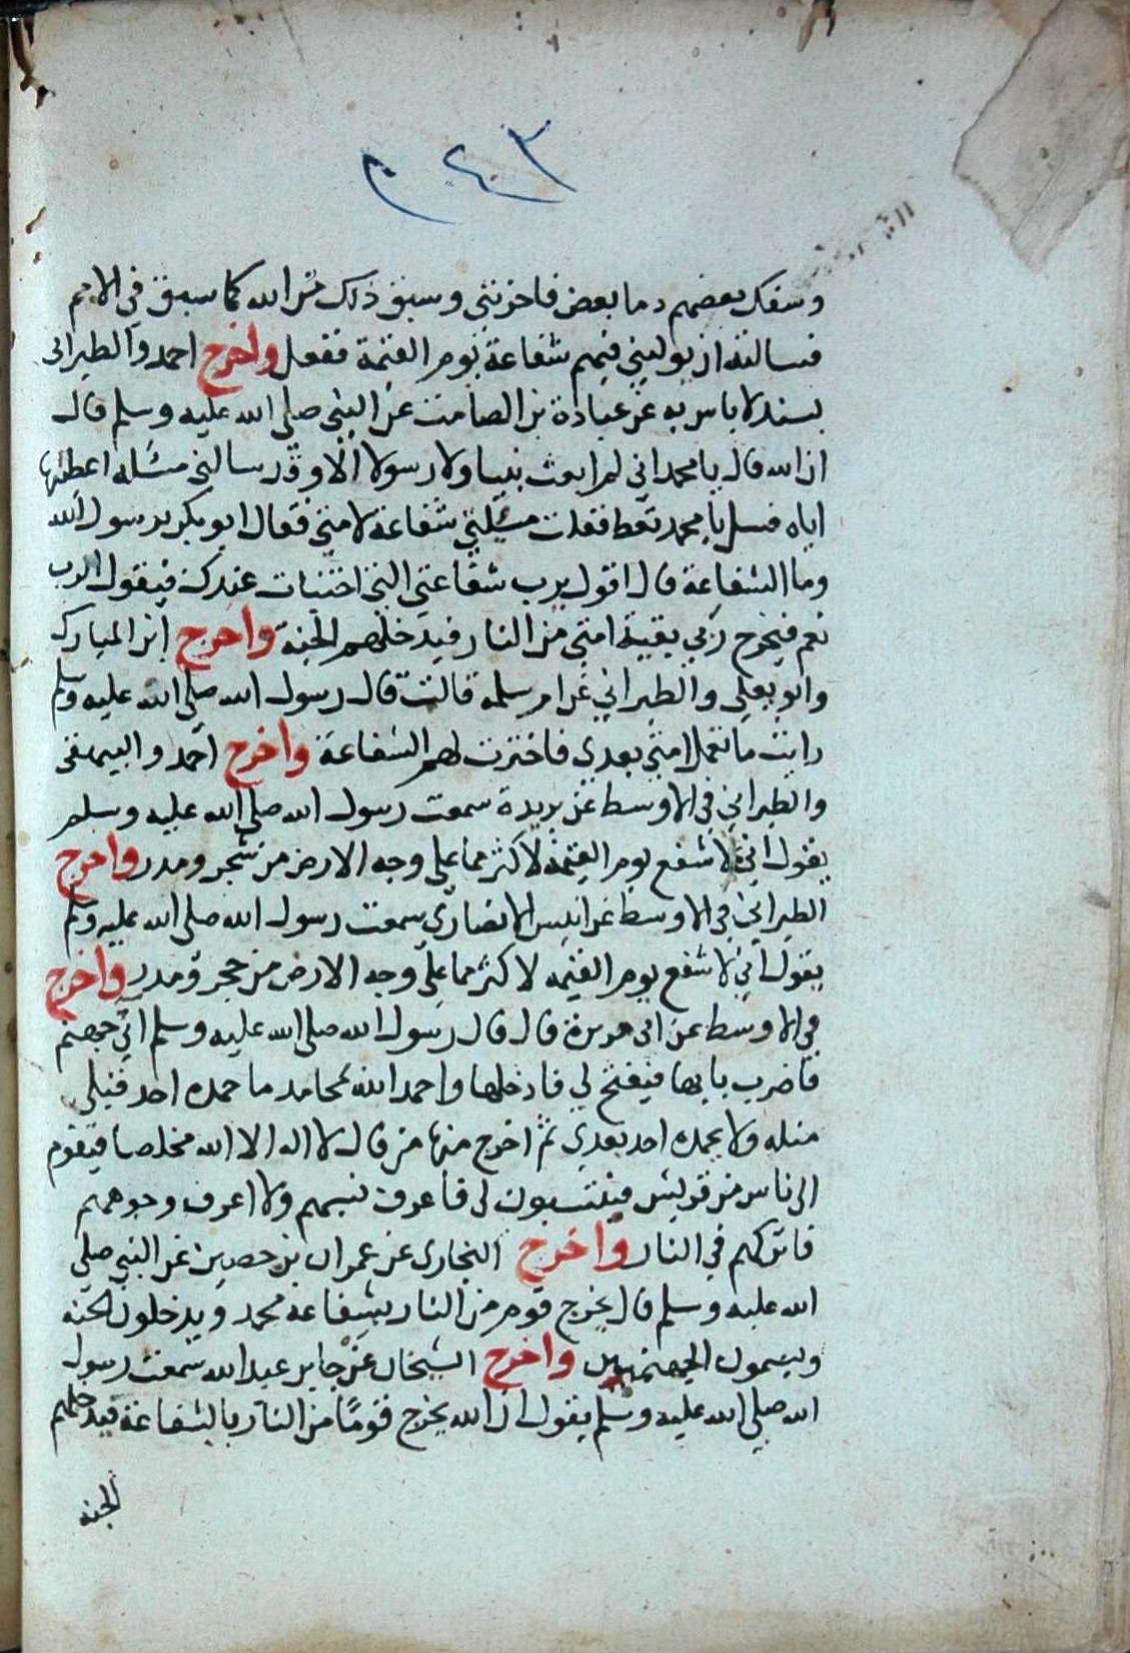 ٢٤٣
وسفك بعضهم دما بعض فاحزنني وسبق ذلك من الله كما سبق في الامم
فسالته ان يوليني فيهم شفاعة يوم القيمة ففعل واخرج احمد والطبراني
بسند لا باس به عن عبادة بن الصامت عن النبي صلى الله عليه وسلم قال
ان الله قال يا محمد اني لم ابعث نبيا ولا رسولا الا وقد سالني مسئله اعطيتها
اياه فسل يا محمد تعط فقلت مسئلتي شفاعة لامتي فقال ابو بكر يرسول الله
وما الشفاعة قال اقول يرب شفاعتي التي اختبات عندك فيقول الرب
نعم فيخرج ربي بقية امتي من النار فيدخلهم الجنة واخرج ابن المبارك
وابو يعلى والطبراني عن ام سلمه قالت قال رسول الله صلى الله عليه وسلم
رايت ما تعمل امتي بعدي فاخترت لهم الشفاعة واخرج احمد والبيهقي
والطبراني في الاوسط عن بريدة سمعت رسول الله صلى الله عليه وسلم
يقول اني لاشفع يوم القيمة لاكثر مما على وجه الارض من شجر ومدر واخرج
الطبراني في الاوسط عن انيس الانصاري سمعت رسول الله صلى الله عليه وسلم
يقول اني لاشفع يوم القيمه لاكثر مما على وجه الارض من حجر ومدر واخرج
في الاوسط عن ابى هريرة قال قال رسول الله صلى الله عليه وسلم اتي جهنم
فاضرب بابها فيفتح لي فادخلها واحمد الله بمحامد ما حمده احد قبلي
مثله ولا يحمده احد بعدي ثم اخرج منها من قال لا اله الا الله مخلصا فيقوم
الى ناس من قريش فينتسبون لى فاعرف نسبهم ولا اعرف وجوههم
فاتركهم في النار واخرج البخارى عن عمران بن حصين عن النبي صلى
الله عليه وسلم قال يخرج قوم من النار بشفاعة محمد ويدخلون الجنه
ويسمون الجهنميين واخرج الشيخان عن جابر عبد الله سمعت رسول
الله صلى الله عليه وسلم يقول ان الله يخرج قوما من النار بالشفاعة فيدخلهم
الجنه